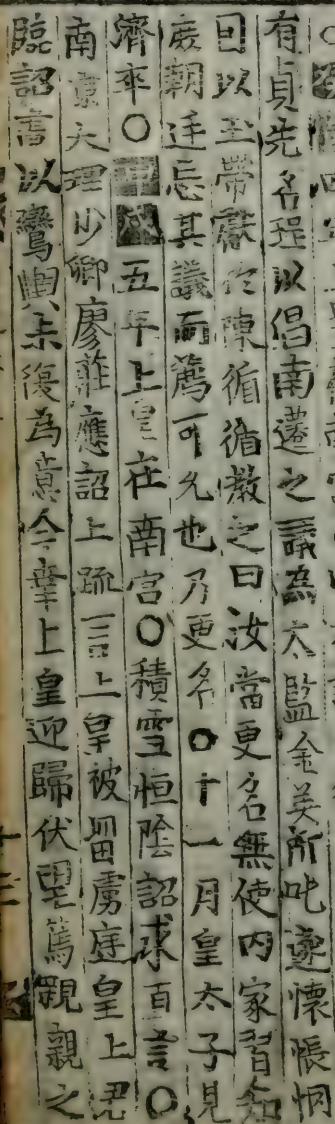 有貞先名珵以倡南遷之議為太監金英所叱遂懷悵惘
目以玉帶獻於陳循循教之曰汝當更名無使內家習知
庶朝廷忘其議而薦可允也乃更名○十一月皇太子見
濟卒○甲戌五年上皇在南宮○積雪恒陰詔求直言○
南京大理少卿廖莊應詔上疏言上皇被留虜庭皇上君
臨詔書以鑾輿未復為意今幸上皇迎歸伏望篤親親之